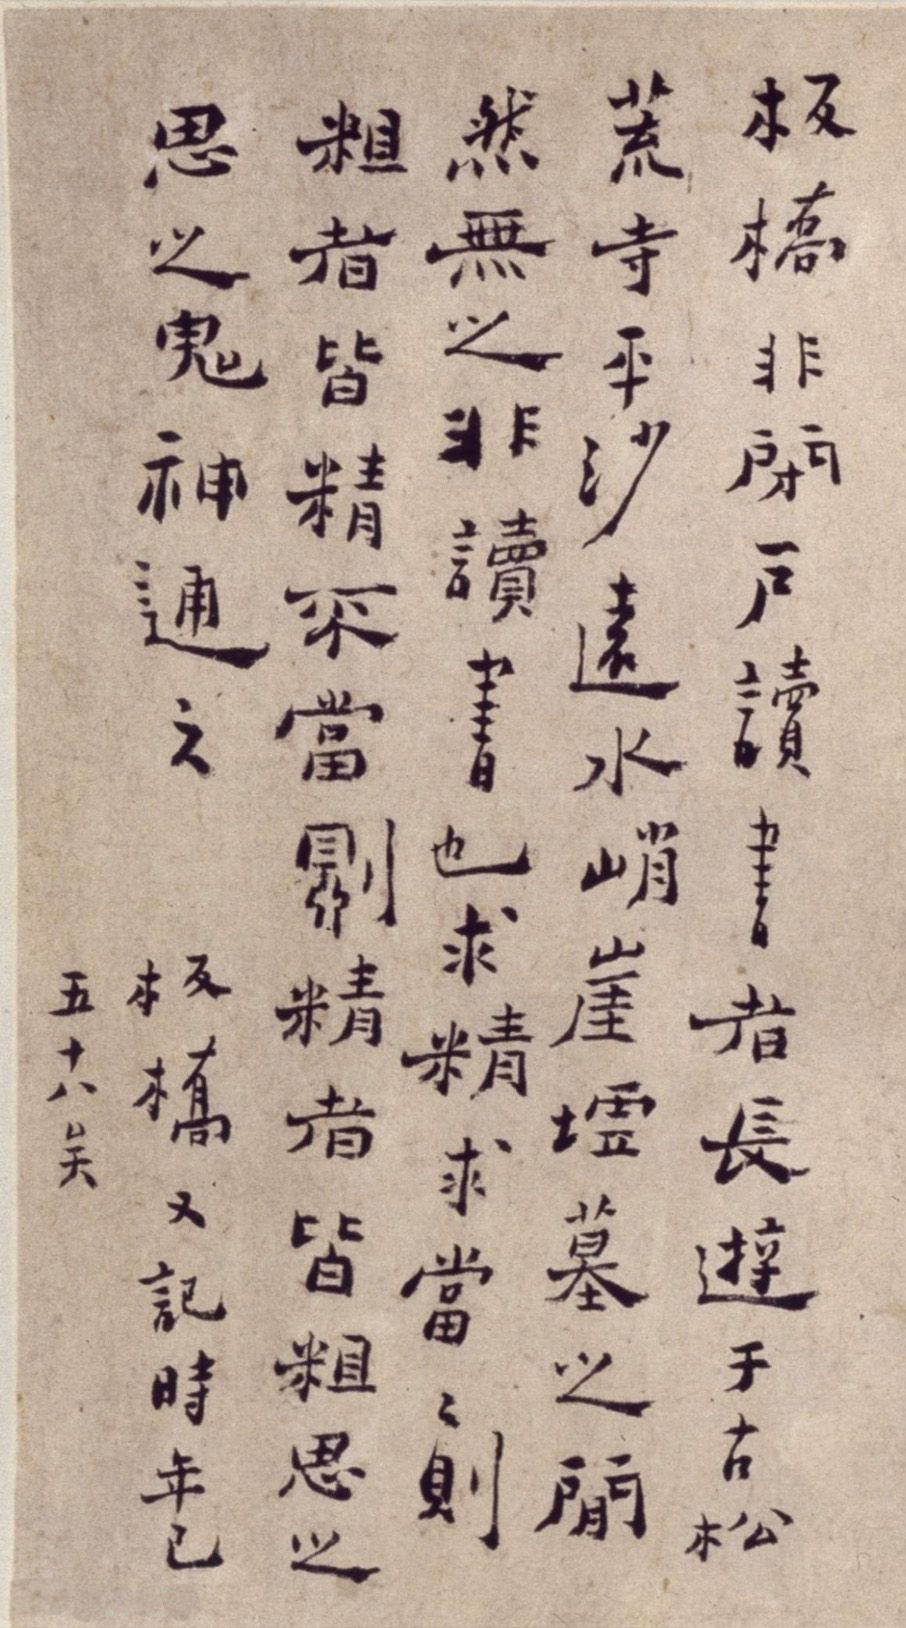 板橋非閉戶讀書者長遊于古松
荒寺平沙遠水峭崖墟墓之間
然無之非讀書也求精求當ミ則
粗者皆精不當則精者皆粗思之
思之鬼神通之
板橋又記時年已
五十八矣